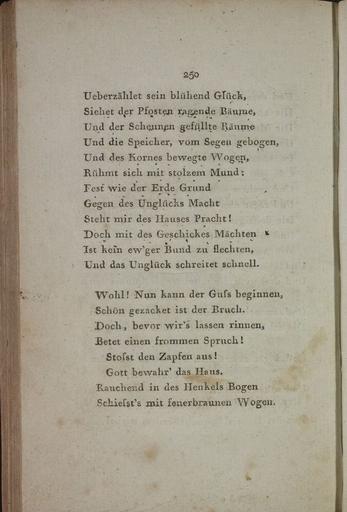 250
Ueberzählet sein blühend Glück,
Siehet der Pfosten ragende Bäume,
Und der Scheunen gefüllte Räume
Und die Speicher, vom Segen gebogen,
Und des Kornes bewegte Wogen,
Rühmt sich mit stolzem Mund:
Fest wie der Erde Grund
Gegen des Unglücks Macht
Steht mir des Hauses Pracht!
Doch mit des Geschickes Mächten
Ist kein ew'ger Bund zu flechten,
Und das Unglück schreitet schnell.
Wohl! Nun kann der Guſs beginnen,
Schön gezacket ist der Bruch.
Doch, bevor wir's lassen rinnen,
Betet einen frommen Spruch!
Stoſst den Zapfen aus!
Gott bewahr' das Haus.
Rauchend in des Henkels Bogen
Schieſst's mit feuerbraunen Wogen.